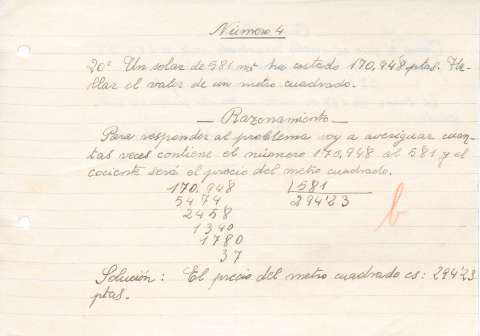 Número 4
20º Un solar de 581 m² ha costado 170,948 ptas. Ha-
llar el valor de un metro cuadrado.
— Razonamiento —
Para responder al problema voy a averiguar cuan-
tas veces contiene el número 170,948 al 581 y el
cociente será el precio del metro cuadrado.
170,948 581
5474 294'23
2458
1340
1780
37
b
Solución: El precio del metro cuadrado es: 294'23
ptas.